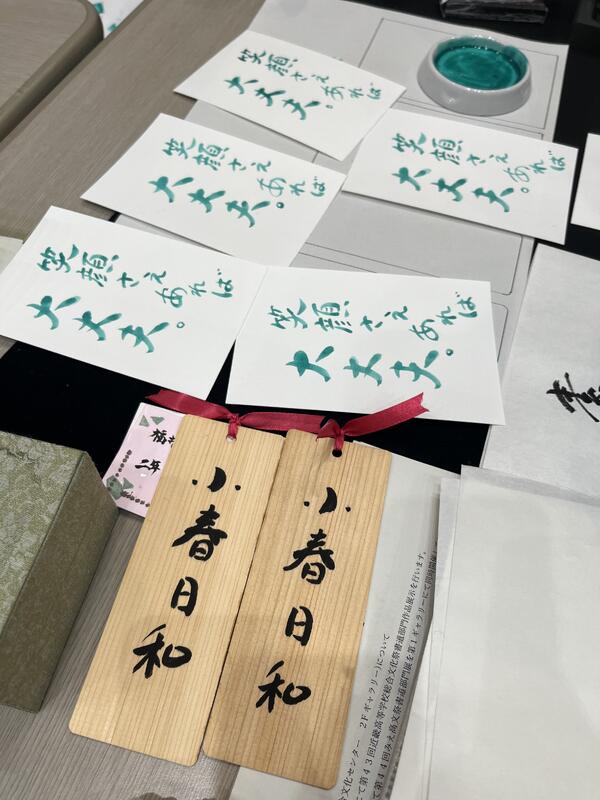 笑顔さえ
あれば
大丈夫。
笑顔さえ
あれば
大丈夫。
笑顔さえ
あれば
大丈夫。
笑顔さえ
あれば
大丈夫。
笑顔さえ
あれば
大丈夫。
小春日和
小春日和
二年
合文化センター 2Fギャラリー)について
にて第43回近畿高等学校総合文化祭書道部門作品展示を行います。
て第44回みえ高文祭書道部門展を第1ギャラリーにて同時開催